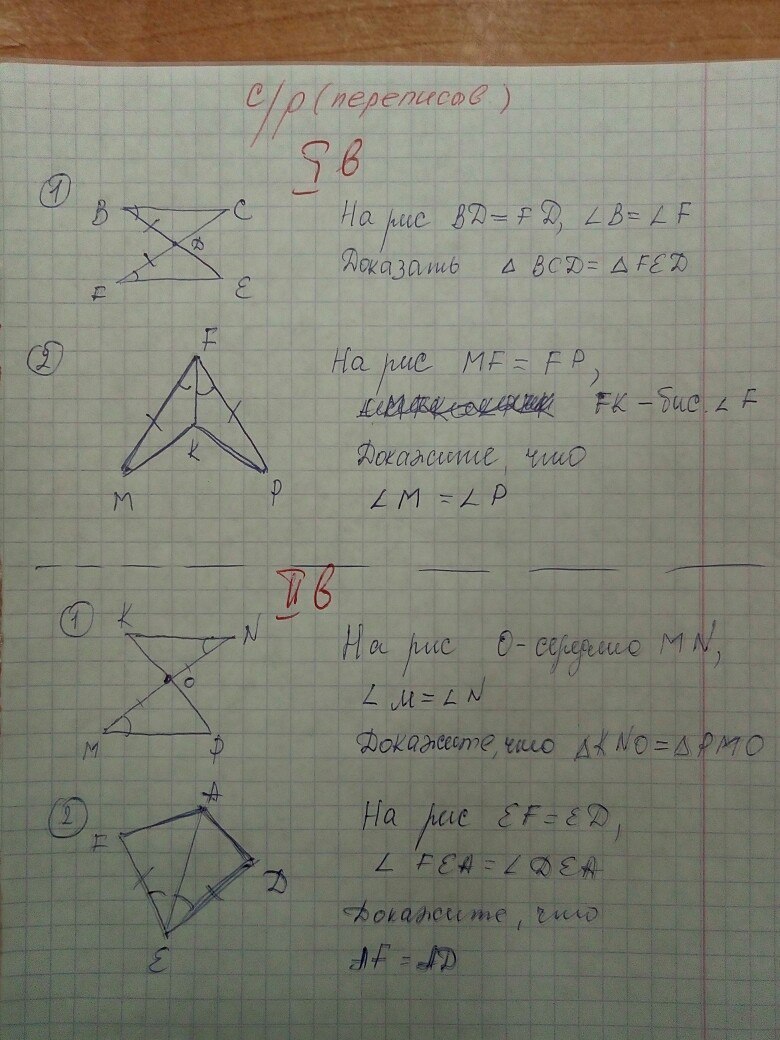 с/р (переписов)
I в
1
B C D F E
На рис BD = FD, ∠B = ∠F
Доказать △ BCD = △ FED
2
F K M P
На рис MF = FP,
FK – бис. ∠F
Докажите, что
∠M = ∠P
II в
1
K N O M P
На рис O - середина MN,
∠M = ∠N
Докажите, что △KNO = △PMO
2
A F D E
На рис EF = ED,
∠ FEA = ∠DEA
Докажите, что
AF = AD